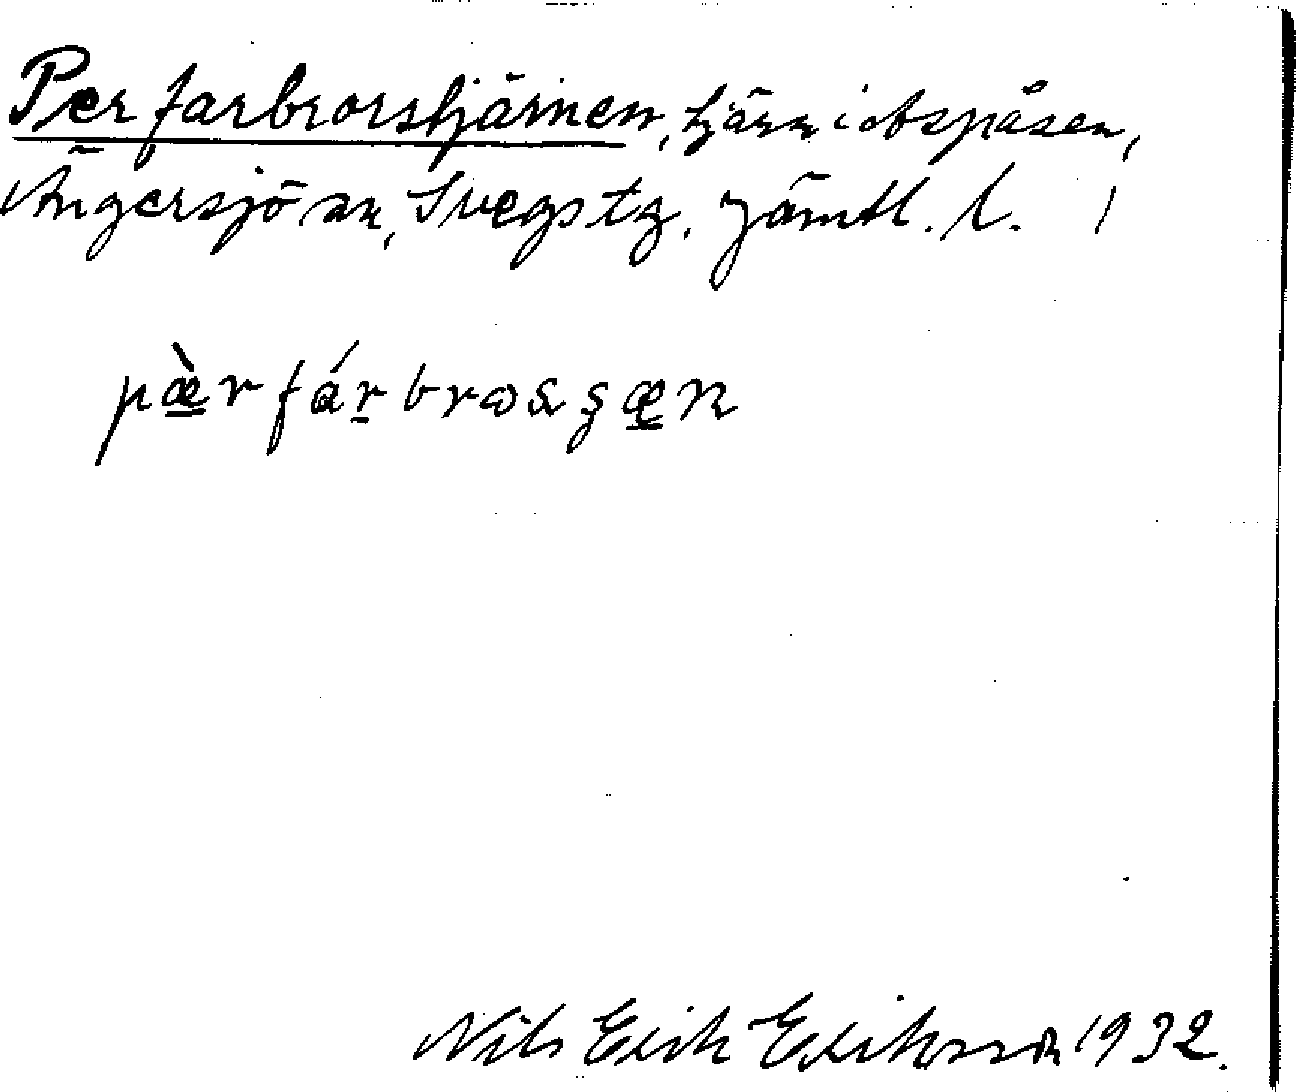 Per farbrorstjärnen, tjärn i obspåsen,
Ängersjö sn, Svegs tg. Jämtl. l.
pæ̀r fárbrosʂæn
Nils Erik Eriksson 1932.